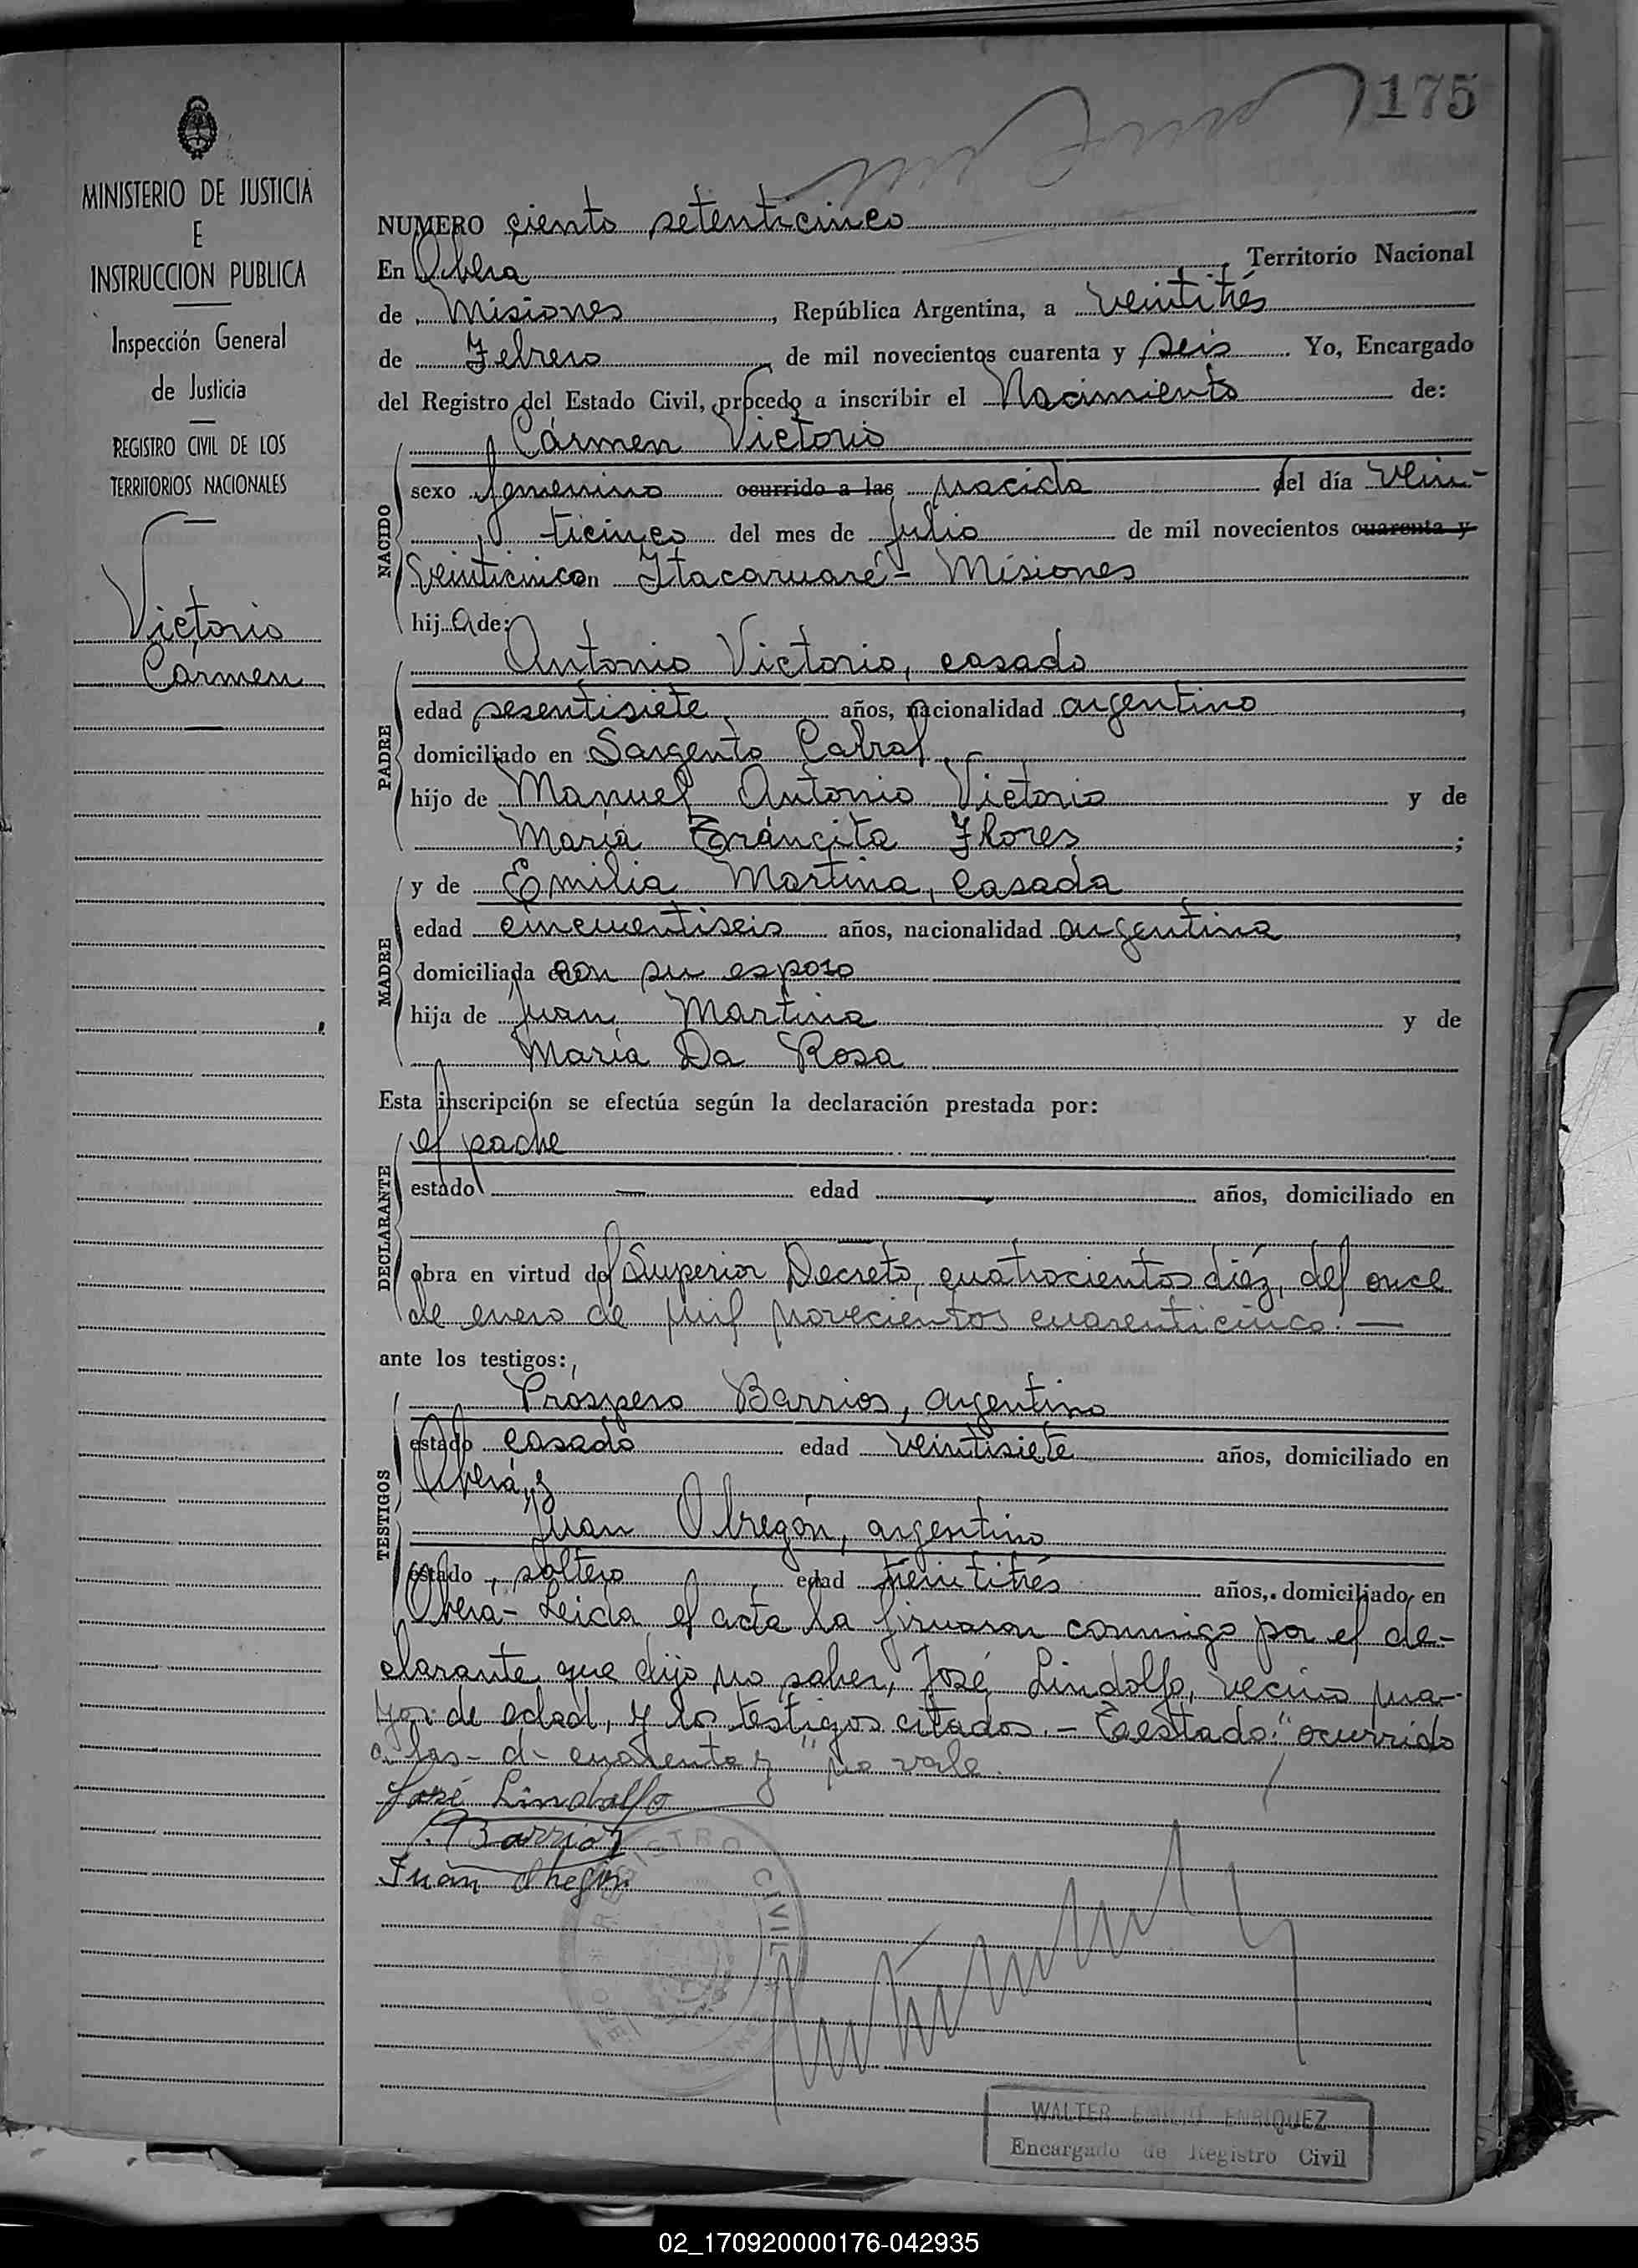 175
MINISTERIO DE JUSTICIA
E
INSTRUCCION PUBLICA
Inspección General
de Justicia
REGISTRO CIVIL DE LOS
TERRITORIOS NACIONALES
Victorio
Carmen
NUMERO ciento setenticinco
En Obera Territorio Nacional
de Misiones, República Argentina, a veintitrés
de Febrero de mil novecientos cuarenta y seis Yo, Encargado
del Registro del Estado Civil, procedo a inscribir el Nacimiento de:
NACIDO
Cármen Victorio
sexo femenino ocurrido a las nacida del día vein-
ticinco del mes de Julio de mil novecientos cuarenta y
veinticinco en Itacaruaré - Misiones
hija de:
PADRE
Antonio Victorio, casado
edad sesentisiete años, nacionalidad argentino,
domiciliado en Sargento Cabral
hijo de Manuel Antonio Victorio y de
María Fráncita Flores;
MADRE
y de Emilia Martina, casada
edad cincuentiseis años, nacionalidad argentina,
domiciliada con su esposo
hija de Juan Martina y de
María Da Rosa
Esta inscripción se efectúa según la declaración prestada por:
DECLARANTE
el padre
estado — edad — años, domiciliado en
—
obra en virtud del Superior Decreto, cuatrocientos diéz, del once
de enero de mil novecientos cuarenticinco.—
ante los testigos:
TESTIGOS
Próspero Barrios, argentino
estado casado edad veintisiete años, domiciliado en
Oberá, y
Juan Obregón, argentino
estado, soltero edad treintitrés años, domiciliado en
Obera - Leida el acta la firmaron conmigo por el de-
clarante que dijo no saber, José Lindolfo, vecino ma-
yor de edad, y los testigos citados. - Testado: "ocurrido
a las - d - cuarenta y" no vale.
José Lindolfo
Barrios
Juan Obregón
REGISTRO CIVIL
WALTER EMILIO ENRIQUEZ
Encargado de Registro Civil
02_170920000176-042935